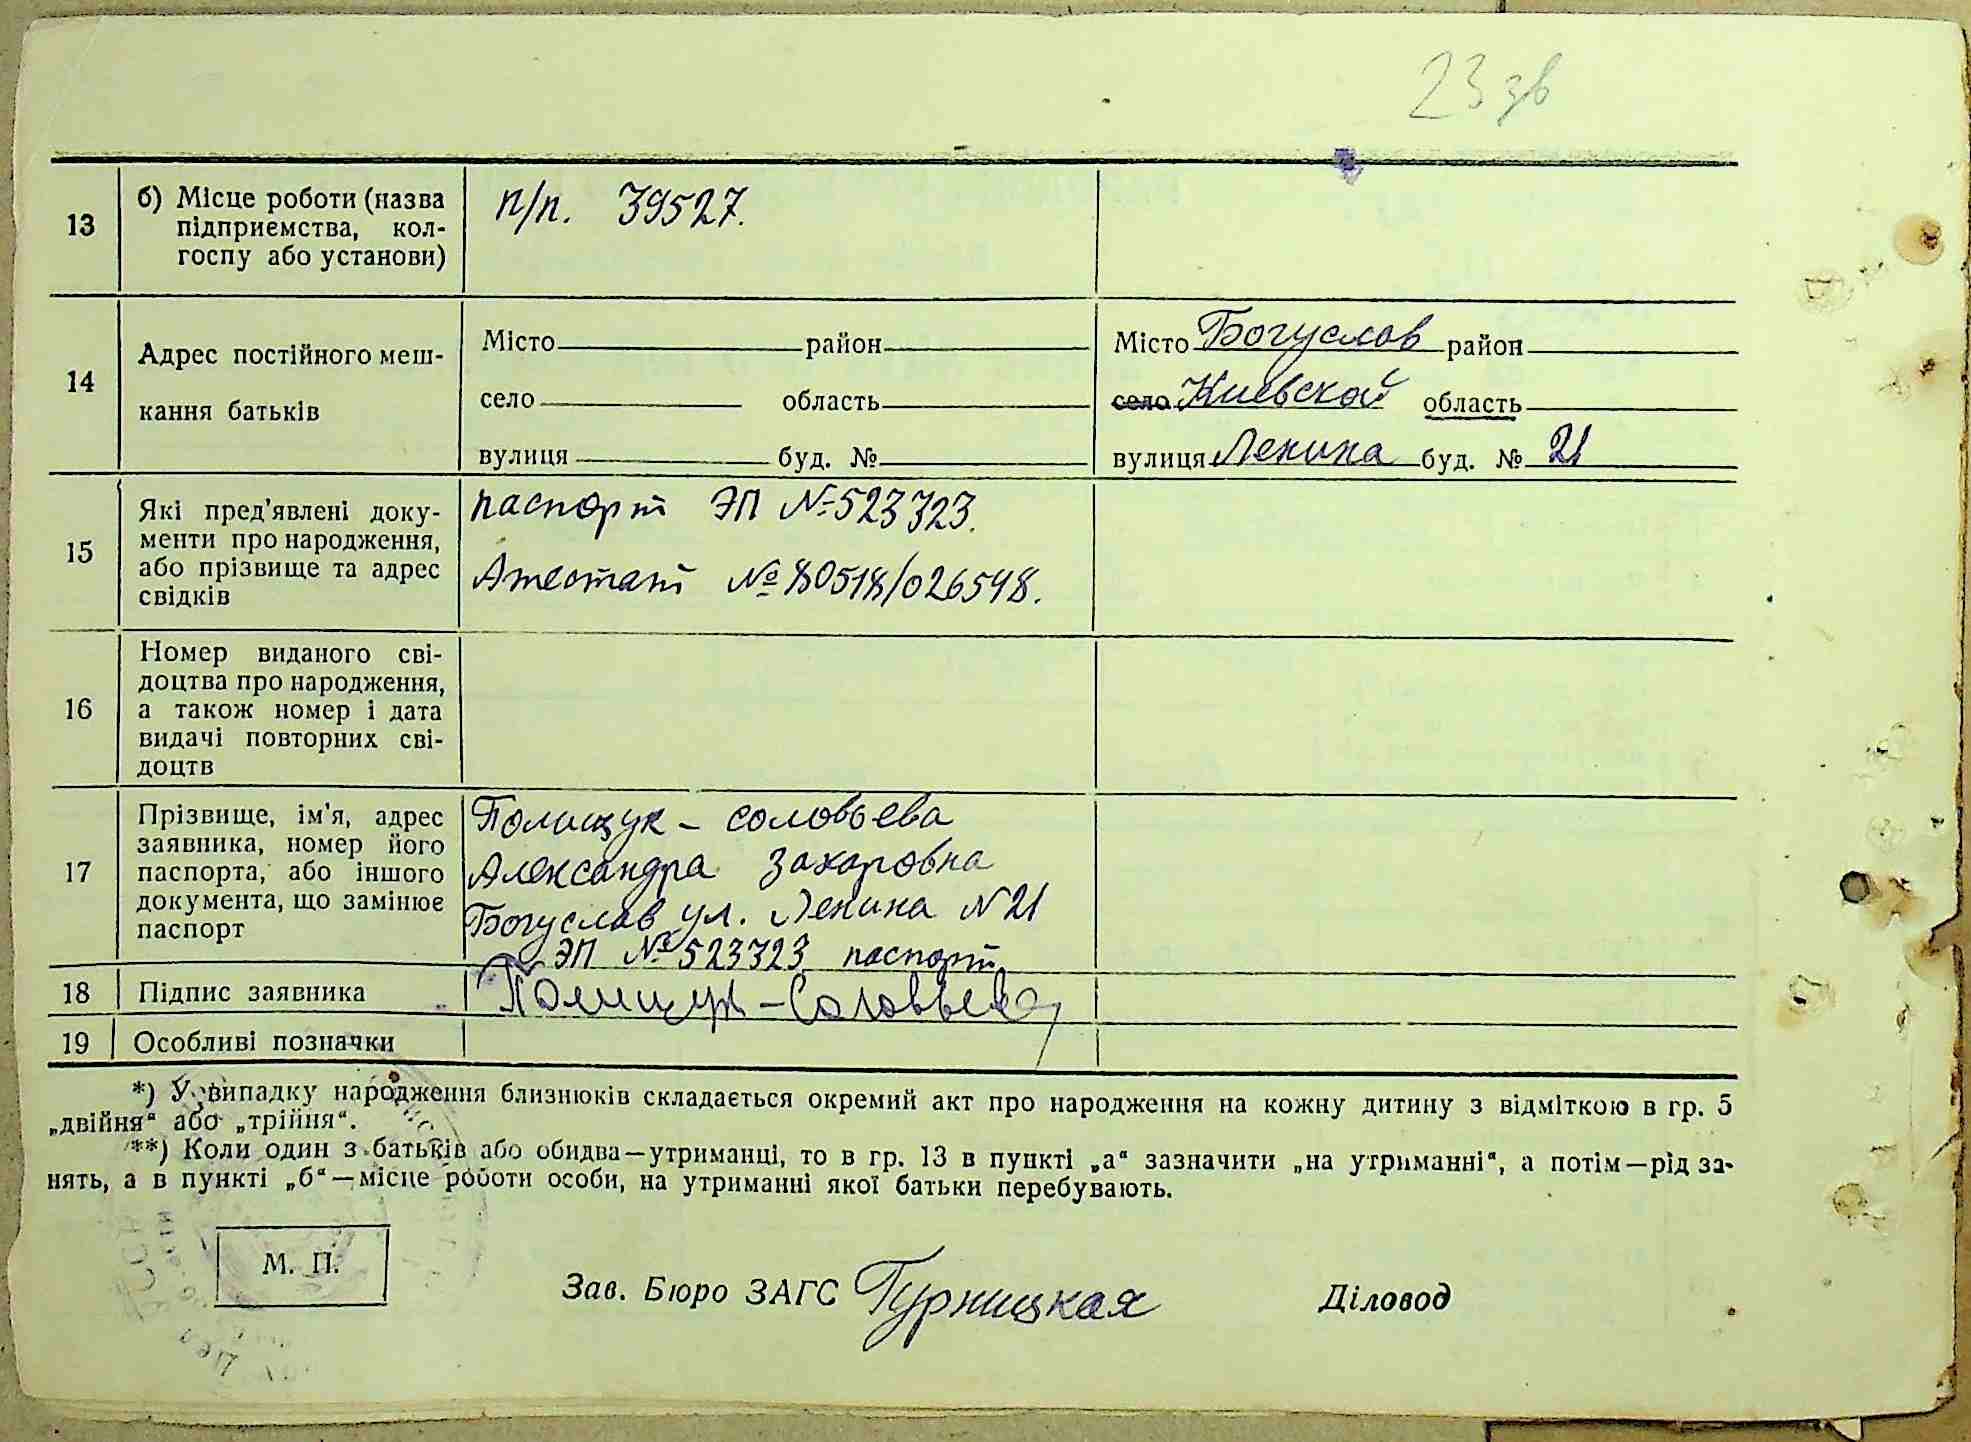 23 зв
13
б) Місце роботи (назва
підприємства, кол-
госпу або установи)
п/п. 39527.
14
Адрес постійного меш-
кання батьків
Місто район
село область
вулиця буд. №
Місто Богуслав район
село Киевской область
вулиця Ленина буд. № 21
15
Які пред'явлені доку-
менти про народження,
або прізвище та адрес
свідків
паспорт ЭП № 523323.
Аттестат № 80518/026548.
16
Номер виданого сві-
доцтва про народження,
а також номер і дата
видачі повторних сві-
доцтв
17
Прізвище, ім'я, адрес
заявника, номер його
паспорта, або іншого
документа, що замінює
паспорт
Полищук – соловьева
Александра Захаровна
Богуслав ул. Ленина N 21
ЭП № 523323 паспорт
18
Підпис заявника
Полищук – Соловьева
19
Особливі позначки
*) У випадку народження близнюків складається окремий акт про народження на кожну дитину з відміткою в гр. 5
„двійня“ або „трійня“.
**) Коли один з батьків або обидва—утриманці, то в гр. 13 в пункті „а“ зазначити „на утриманні“, а потім—рід за-
нять, а в пункті „б“—місце роботи особи, на утриманні якої батьки перебувають.
М. П.
Зав. Бюро ЗАГС Турницкая
Діловод